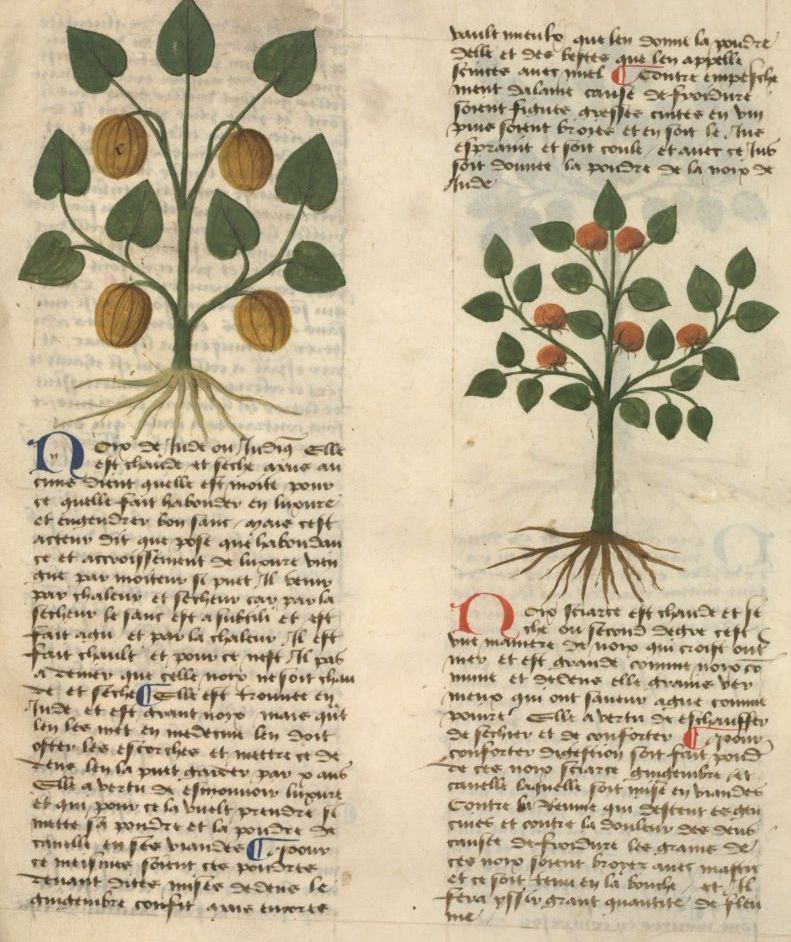 Noix de Inde ou Indiq̄ Elle
est chaude et seche mais au
cuns dient quelle est moite pour
ce quelle fait habonder en luxure
et engendrer bon sanc / mais cest
acteur dit que pose que habondan
ce et accroissement de luxure vien
gne par moiteur si puet Il venir
par chaleur et secheur car par la
secheur le sanc est a subtili et est
fait agu et par la chaleur Il est
fait chault et pour ce nest Il pas
a que celle noix ne soit chau
de et seche ¶ Elle est trouuee en
Inde et est grant noix mais qūt
len les met en medecine len doit
oster les escorches et mettre ce de
dens len la puet garder par x ans
Elle a vertu de esmouuoir luxure
et qui pour ce la vuelt prendre si
mette sa poudre et la poudre de
canelle en ses viandes ¶ Pour
ce meismes soient ces poudres
deuant dites mises dedens le
gingembre confit mais encores
vault mieulx que len donne la poudre
delle et des bestes que len appelle
scinces auec miel ¶ Contre empesche
ment dalaine cause de froidure
soient figues gresses cuites en vin
puis soient broyes et en soit le Jus
espraint et soit coule / et auec ce Jus
soit donnee la poudre de la noix de
Inde
Noix sciarce est chaude et se
che ou second degre cest
vne maniere de noix qui croist oult
mer et est grande comme noix co
mune et dedens elle grains ver
meux qui ont saueur ague comme
poiure Elle a vertu de eschauffer
de sechier et de conforter ¶ Pour
conforter digestion soit fait poud
de ces noix sciarce gingembre et
canelle laquelle soit mise en viandes
Contre la reume qui descent es gen
ciues et contre la douleur des dens
causee de froidure les grains de
ces noix soient broyez auec mastic
et ce soit tenu en la bouche et Il
fera yssir grant quantite de fleu
me